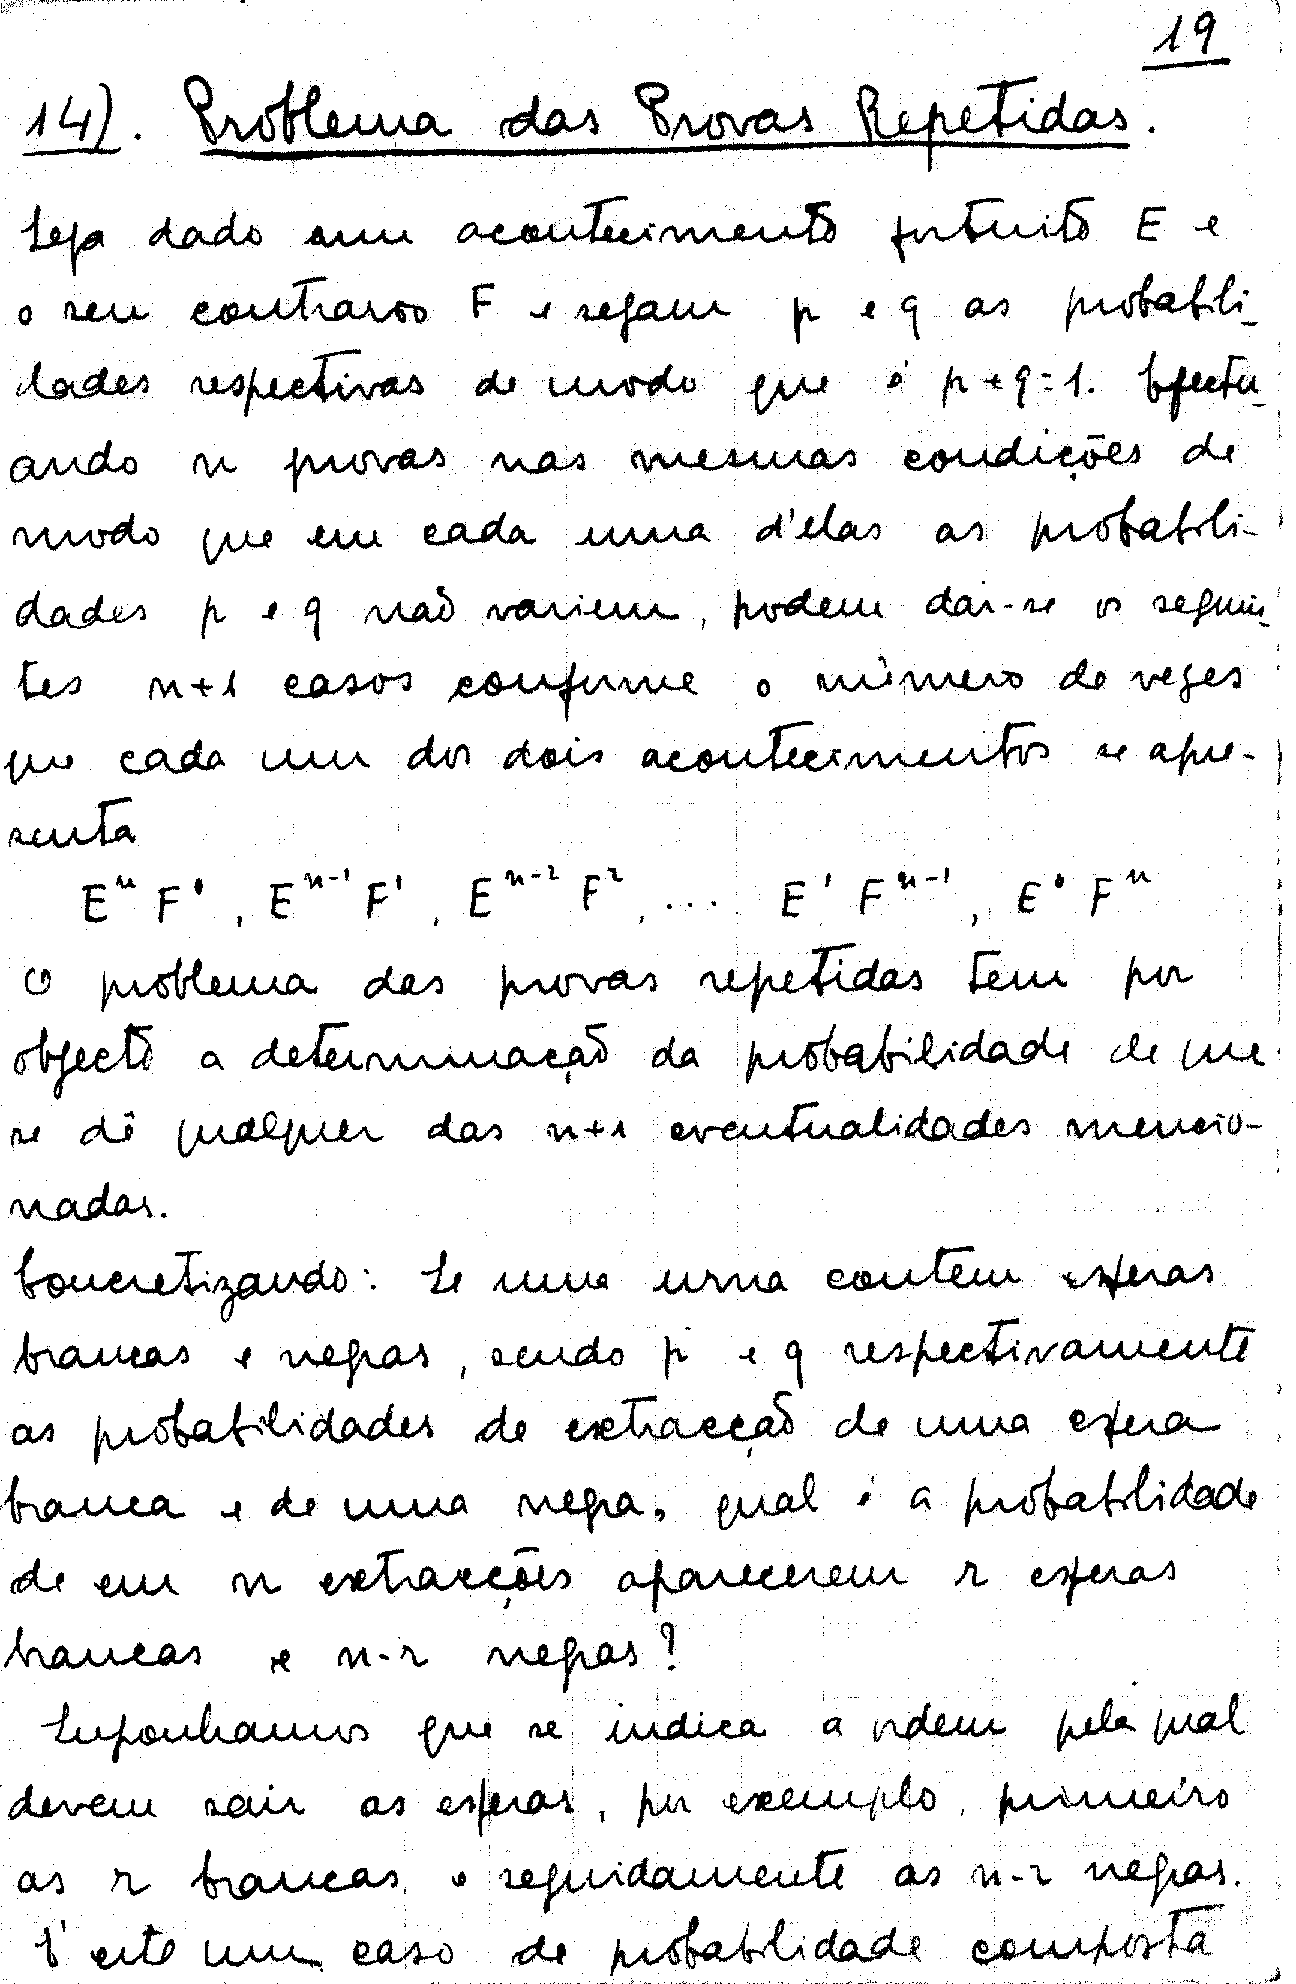 19
14). Problema das Provas Repetidas.
Seja dado um acontecimento fortuito E e
o seu contrario F e sejam p e q as probabili-
dades respectivas de modo que é p+q=1. Efectu-
ando n provas nas mesmas condições de
modo que em cada uma d'elas as probabili-
dades p e q não variem, podem dar-se os seguin-
tes n+1 casos conforme o número de vezes
que cada um dos dois acontecimentos se apre-
senta
Eⁿ F⁰, Eⁿ⁻¹ F¹, Eⁿ⁻² F², ... E¹ Fⁿ⁻¹, E⁰ Fⁿ
O problema das provas repetidas tem por
objecto a determinação da probabilidade de que
se dê qualquer das n+1 eventualidades mencio-
nadas.
Concretizando: Se uma urna contem esferas
brancas e negras, sendo p e q respectivamente
as probabilidades de extracção de uma esfera
branca e de uma negra, qual é a probabilidade
de em n extracções aparecerem r esferas
brancas e n-r negras?
Suponhamos que se indica a ordem pela qual
devem sair as esferas, por exemplo, primeiro
as r brancas e seguidamente as n-r negras.
É este um caso de probabilidade composta